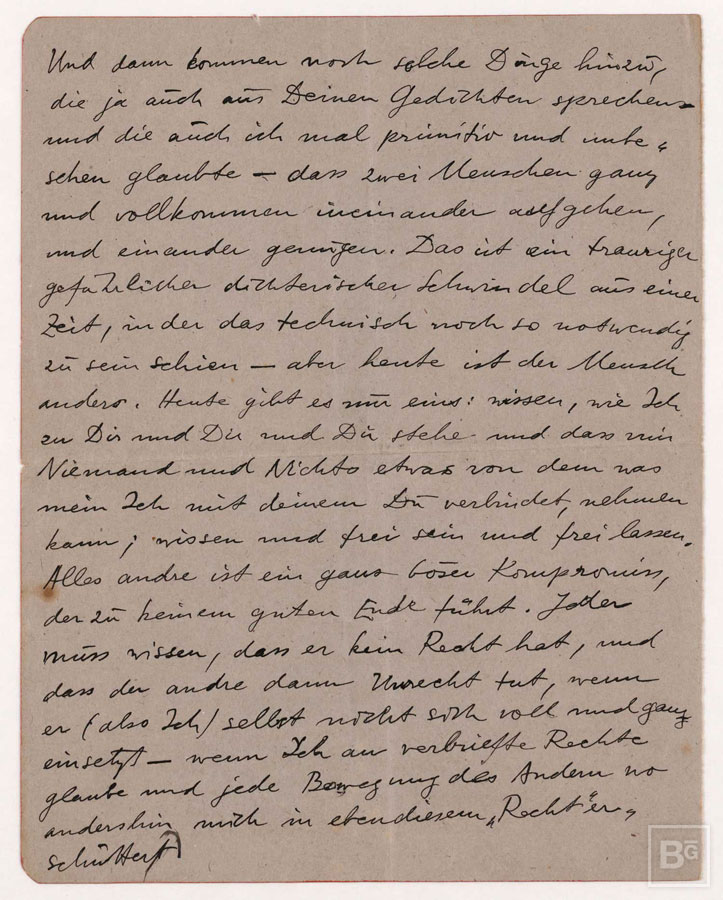 Und dann kommen noch solche Dinge hinzu,
die ja auch aus Deinen Gedichten sprechen
und die auch ich mal primitiv und unbe„
sehen glaubte – dass zwei Menschen ganz
und vollkommen ineinander aufgehen,
und einander genügen. Das ist ein trauriger
gefährlicher dichterischer Schwindel aus einer
Zeit, in der das technisch noch so notwendig
zu sein schien – aber heute ist der Mensch
anders. Heute gibt es nur eins: wissen, wie Ich
zu Dir und Du und Du stehe und dass mir
Niemand und Nichts etwas von dem was
mein Ich mit deinem Du verbindet, nehmen
kann; wissen und frei sein und frei lassen.
Alles andre ist ein ganz böser Kompromiss,
der zu keinem guten Ende führt. Jeder
muss wissen, dass er kein Recht hat, und
dass der andre dann Unrecht tut, wenn
er (also Ich) selbst nicht sich voll und ganz
einsetzt – wenn Ich an verbriefte Rechte
glaube und jede Bewegung des Andern wo
andershin mich in ebendiesem „Recht" er„
schüttert)
BG